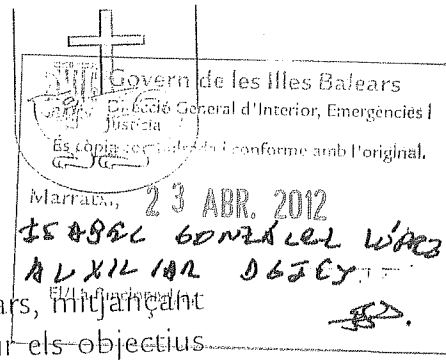 Govern de les Illes Balears
Direcció General d'Interior, Emergències i
Justícia
És còpia i conforme amb l'original.
Marratxí, 23 ABR. 2012
ISABEL GONZÁLEZ LÓPEZ
AUXILIAR DGIEJ
El/La funcionari/a,
ars, mitjançant
ur els objectius